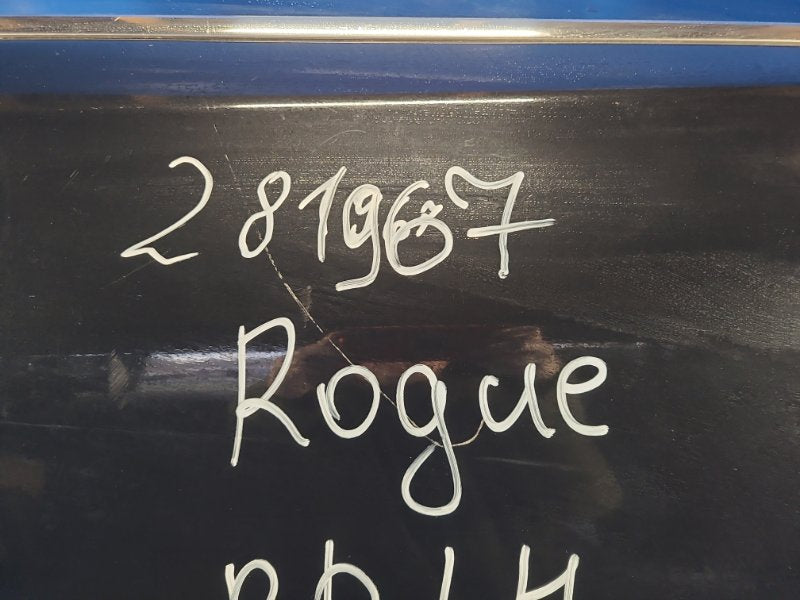 281967
Rogue